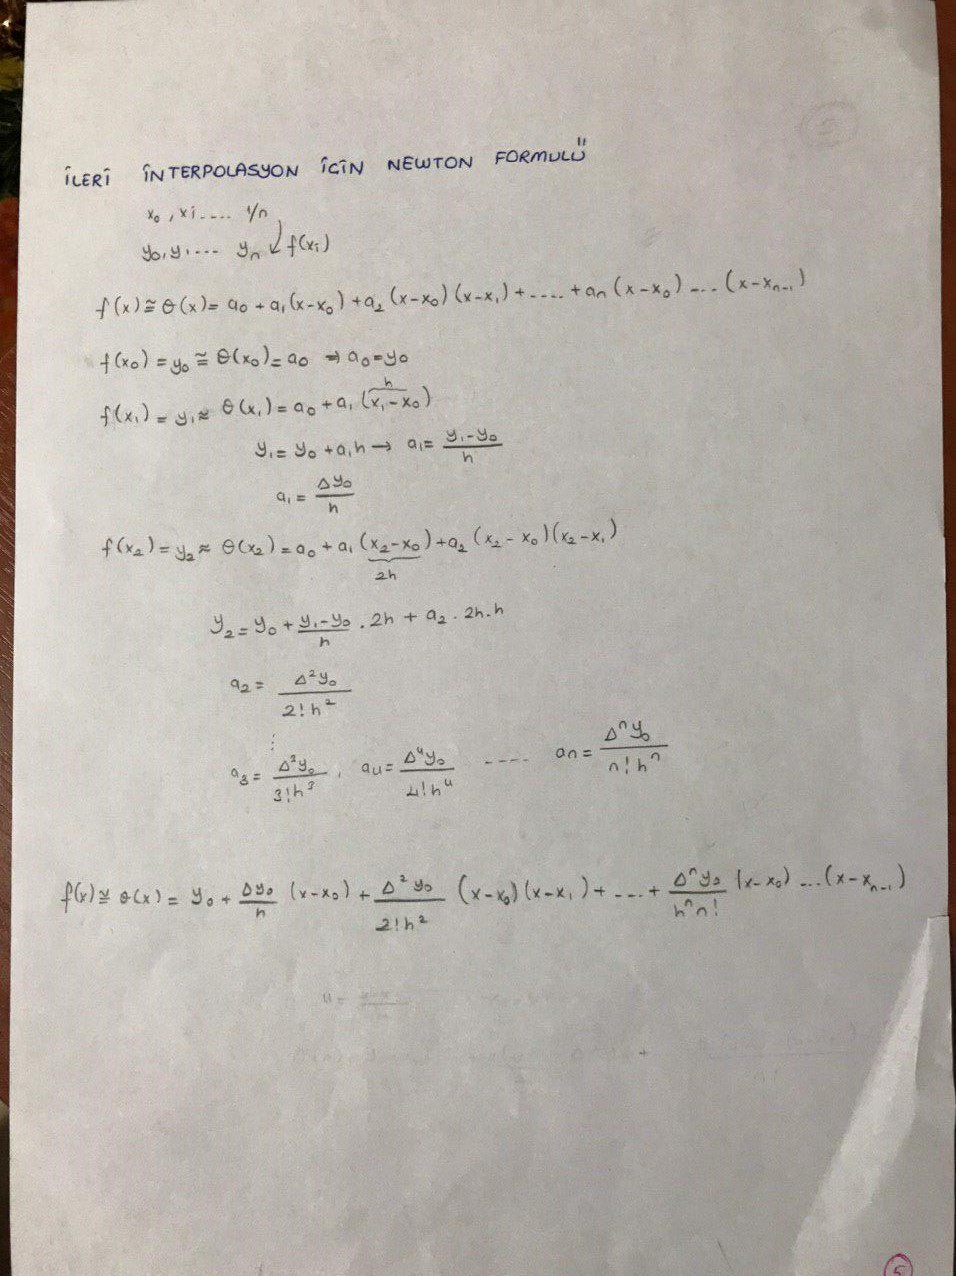 İLERİ İNTERPOLASYON İÇİN NEWTON FORMULÜ
x₀, xi .... Yn
y₀, y₁ .... yₙ f(xᵢ)
f(x) ≅ θ(x) = a₀ + a₁(x-x₀) + a₂(x-x₀)(x-x₁) + .... + aₙ(x-x₀) .... (x-xₙ₋₁)
f(x₀) = y₀ ≅ θ(x₀) = a₀ ⇒ a₀ = y₀
f(x₁) = y₁ ≈ θ(x₁) = a₀ + a₁(x₁-x₀) h
y₁ = y₀ + a₁h → a₁ = (y₁-y₀)/h
a₁ = Δy₀/h
f(x₂) = y₂ ≈ θ(x₂) = a₀ + a₁(x₂-x₀) + a₂(x₂-x₀)(x₂-x₁)
2h
y₂ = y₀ + (y₁-y₀)/h . 2h + a₂ . 2h.h
a₂ = Δ²y₀/2!h²
⋮
a₃ = Δ³y₀/3!h³, a₄ = Δ⁴y₀/4!h⁴ .... aₙ = Δⁿy₀/n!hⁿ
f(x) ≅ θ(x) = y₀ + Δy₀/h (x-x₀) + Δ²y₀/2!h² (x-x₀)(x-x₁) + .... + Δⁿy₀/hⁿn! (x-x₀) ....(x-xₙ₋₁)
5